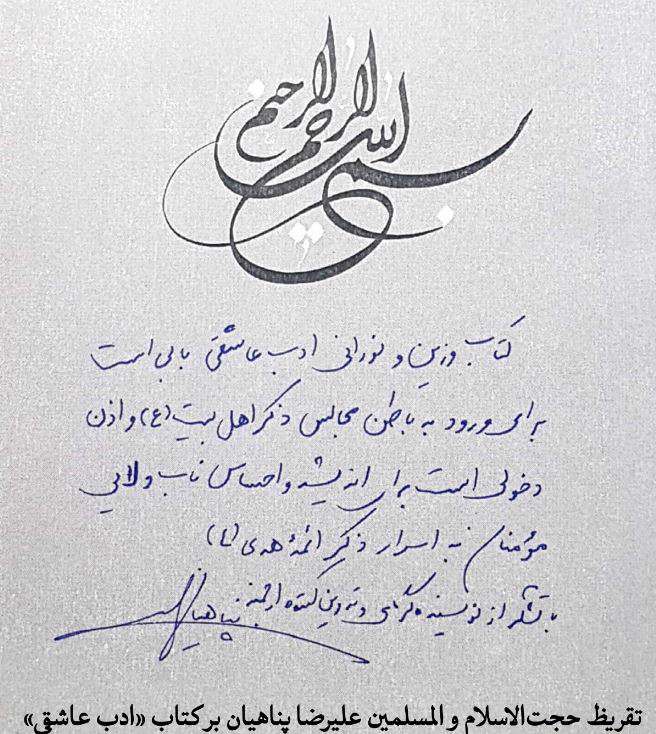 بسم الله الرحمن الرحیم
کتاب وزین و نورانی ادب عاشقی بابی است
برای ورود به باطن مجالس ذکر اهل بیت (ع) و اذن
دخولی است برای اندیشه و احساس ناب ولایی
مؤمنان به اسرار ذکر ائمهٔ هدی (ع)
با تشکر از نویسنده گرامی و تدوین کننده ارجمند پناهیان
تقریظ حجت‌الاسلام و المسلمین علیرضا پناهیان بر کتاب «ادب عاشقی»